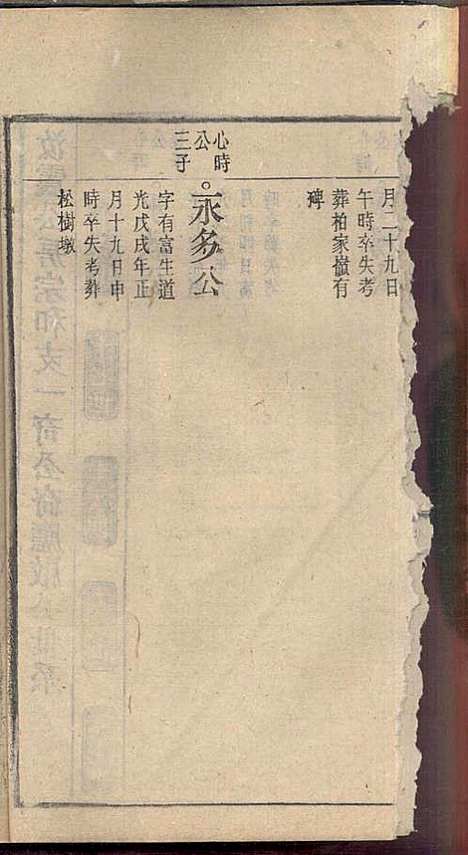 月二十九日
午時卒失考
葬柏家嶺有
碑
心時
公
三子
永多公
字有富生道
光戊戌年正
月十九日申
時卒失考葬
松樹墩